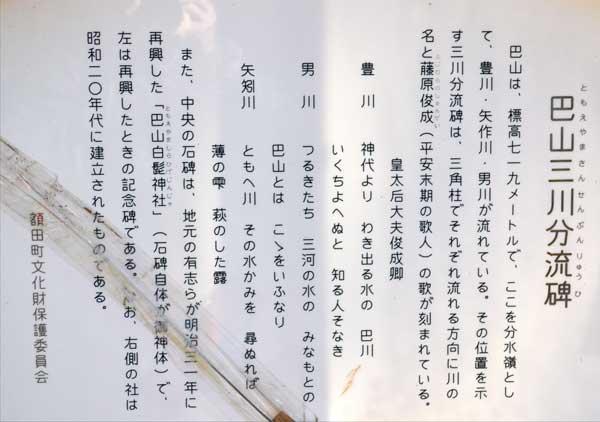 巴山三川分流碑
ともえやまさんせんぶんりゅうひ
巴山は、標高七一九メートルで、ここを分水嶺とし
て、豊川・矢作川・男川が流れている。その位置を示
す三川分流碑は、三角柱でそれぞれ流れる方向に川の
名と藤原俊成(平安末期の歌人)の歌が刻まれている。
ふじわらのしゅんぜい
皇太后大夫俊成卿
豊川　神代より　わき出る水の　巴川
いくちよへぬと　知る人そなき
男川　つるきたち　三河の水の　みなもとの
巴山とは　こゝをいふなり
矢矧川　ともへ川　その水かみを　尋ぬれば
薄の雫　萩のした露
また、中央の石碑は、地元の有志らが明治三一年に
再興した「巴山白髭神社」(石碑自体が御神体)で、
ともえやましらひげじんじゃ
左は再興したときの記念碑である。なお、右側の社は
昭和二〇年代に建立されたものである。
額田町文化財保護委員会